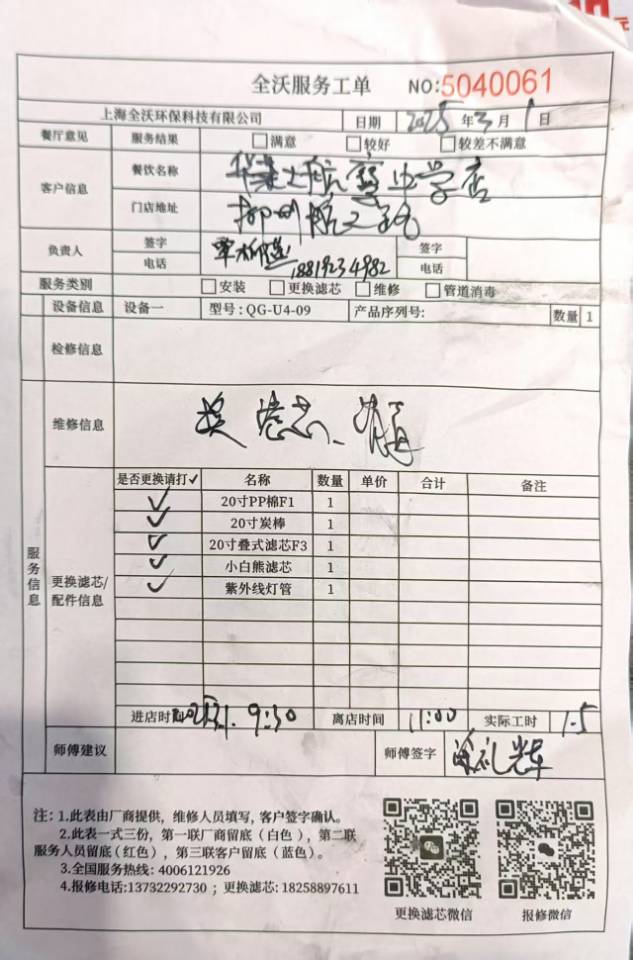 全沃服务工单 NO:5040061
上海全沃环保科技有限公司 日期 2025年3月1日
餐厅意见 服务结果 □满意 □较好 □较差不满意
客户信息 餐饮名称 华莱士航空 学店
门店地址 柳州航
负责人 签字 签字
电话 18819234982 电话
服务类别 □安装 □更换滤芯 □维修 □管道消毒
设备信息 设备一 型号:QG-U4-09 产品序列号: 数量 1
检修信息
服务信息
维修信息 换滤芯、
更换滤芯/配件信息
是否更换请打✓ 名称 数量 单价 合计 备注
✓ 20寸PP棉F1 1
✓ 20寸炭棒 1
✓ 20寸叠式滤芯F3 1
✓ 小白熊滤芯 1
✓ 紫外线灯管 1
进店时间 9:30 离店时间 11:00 实际工时 1.5
师傅建议 师傅签字
注: 1.此表由厂商提供，维修人员填写, 客户签字确认。
2.此表一式三份，第一联厂商留底（白色），第二联
服务人员留底(红色），第三联客户留底（蓝色）。
3.全国服务热线: 4006121926
4.报修电话:13732292730 ；更换滤芯: 18258897611
更换滤芯微信 报修微信